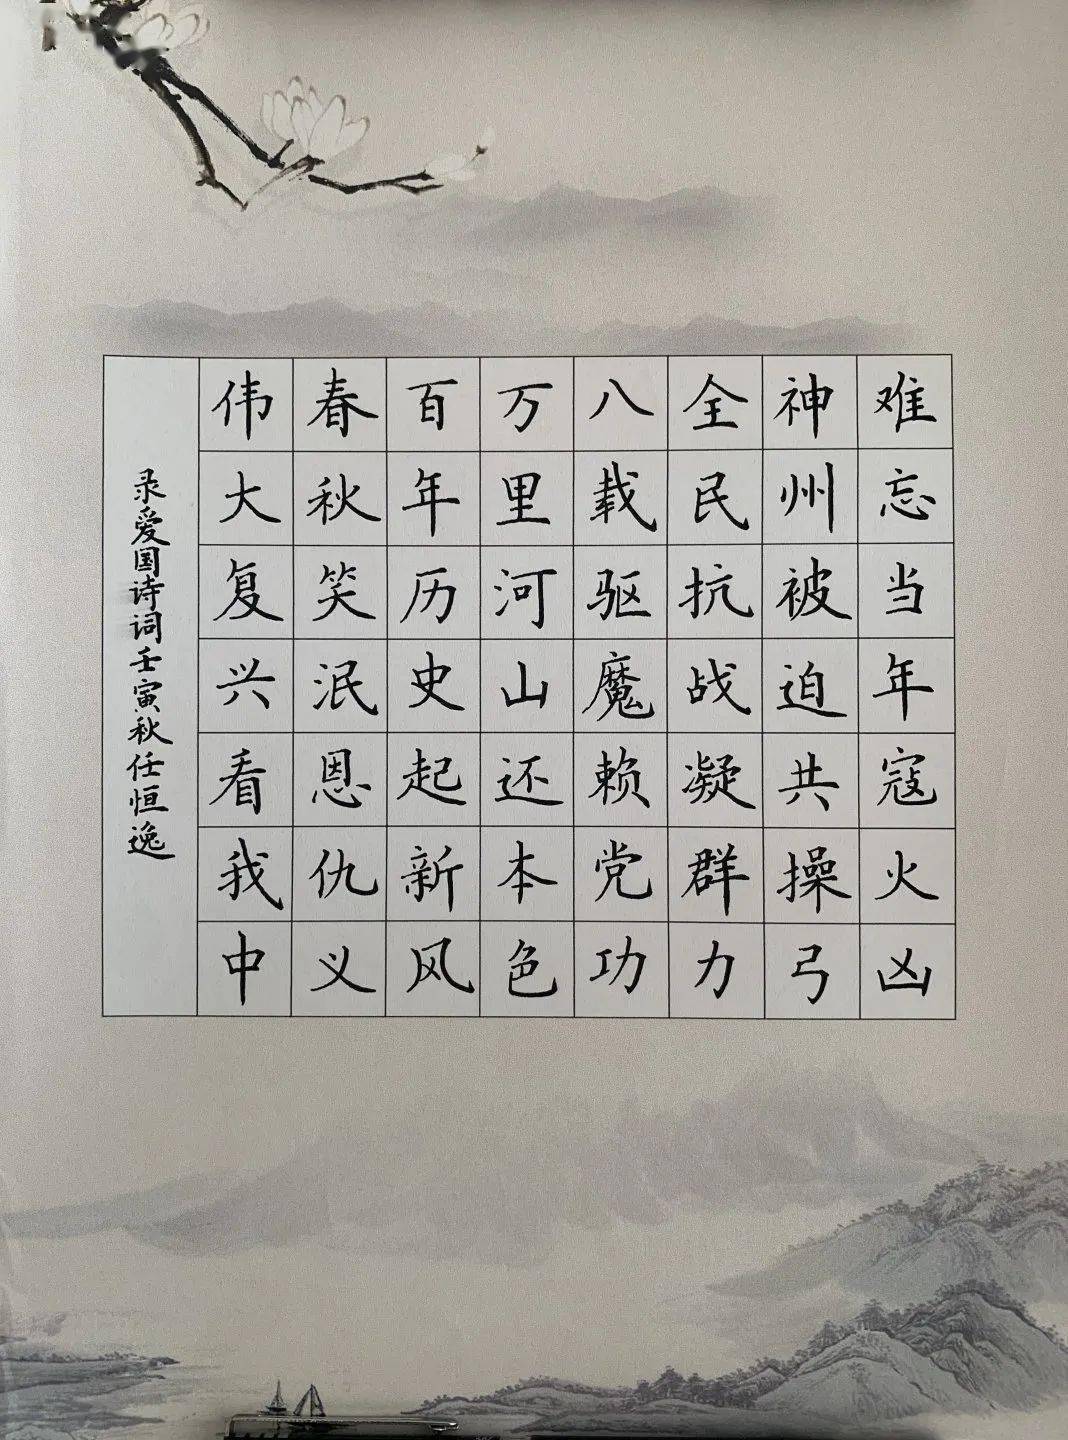 难忘当年寇火凶
神州被迫共操弓
全民抗战凝群力
八载驱魔赖党功
万里河山还本色
百年历史起新风
春秋笑泯恩仇义
伟大复兴看我中
录爱国诗词壬寅秋任恒逸